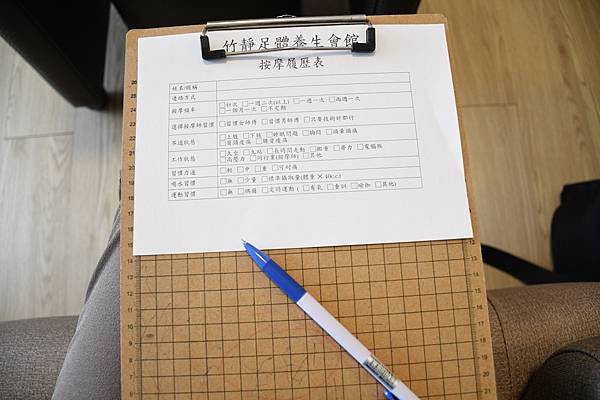 竹靜足體養生會館
按摩履歷表
姓名/暱稱
連絡方式
按摩頻率 □初次 □一週二次(以上) □一週一次 □兩週一次
□一個月一次 □不定期
選擇按摩師習慣 □習慣女師傅 □習慣男師傅 □只要技術好都行
不適狀態 □上肢 □下肢 □睡眠問題 □胸悶 □頭暈頭痛
□肩頸痠痛 □腰背痠痛
工作狀態 □久坐 □久站 □長時間走動 □搬重 □勞力 □電腦族
□高壓力 □同行業(按摩師) □其他
習慣力道 □輕 □中 □重 □可耐痛
喝水習慣 □無 □少量 □標準攝取量(體重 × 40c.c.)
運動習慣 □無 □偶爾 □定時運動 ( □有氧 □重訓 □瑜伽 □其他)